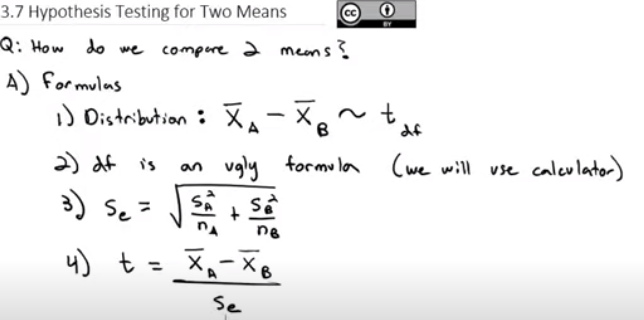 3.7 Hypothesis Testing for Two Means
cc BY
Q: How do we compare 2 means?
A) Formulas
1) Distribution : X̄_A - X̄_B ~ t_df
2) df is an ugly formula (we will use calculator)
3) Se = √(S_A²/n_A + S_B²/n_B)
4) t = (X̄_A - X̄_B)/Se